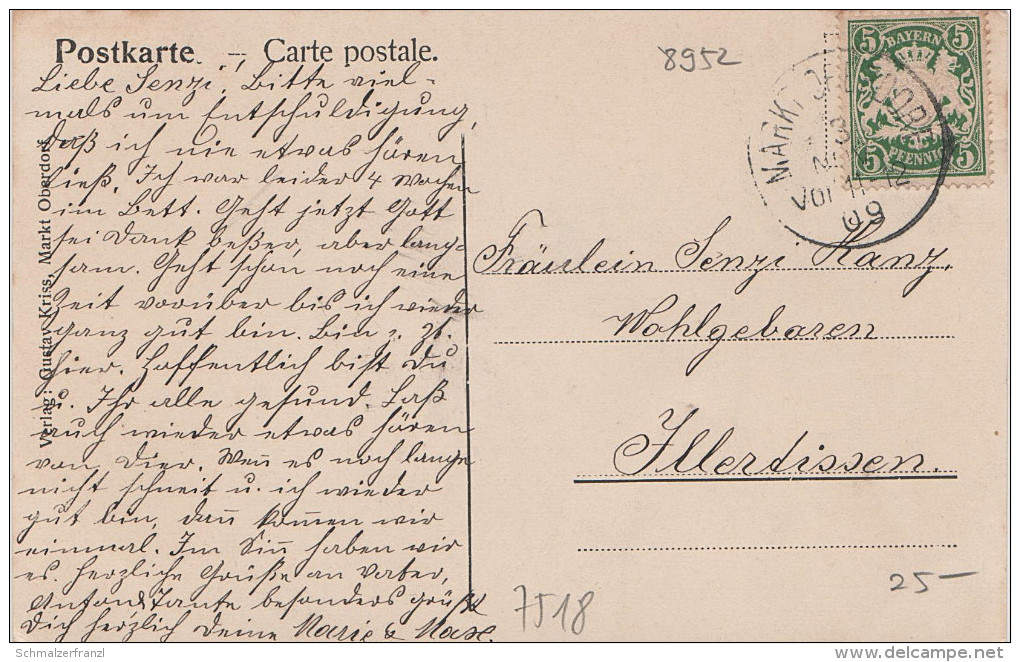 Postkarte. — Carte postale.
8952
5 BAYERN 5
5 PFENNIG 5
MARKT OBERDORF
VOR 11-12
09
Verlag: Gustav Kriss, Markt Oberdorf
Liebe Senzi, Bitte viel-
mals um Entschuldigung,
daß ich nie etwas hören
ließ. Ich war leider 4 Wochen
im Bett. Geht jetzt Gott
sei Dank beßer, aber lang-
sam. Geht schon noch eine
Zeit vorüber bis ich wieder
ganz gut bin. Bin z. Zt.
hier. Hoffentlich bist Du
u. Ihr alle gesund. Laß
auch wieder etwas hören
von Dier. Wen̄ es noch lange
nicht schneit u. ich wieder
gut bin, dan̄ kom̄en wir
einmal. Im Sin̄ haben wir
es. Herzliche Grüße an Vater,
Anton & Tante besonders grüßt
Dich herzlich Deine Marie &
Fräulein Senzi Kanz,
Wohlgebaren
Illertissen.
7518
25-
Schmalzerfranzl
delcampe.net